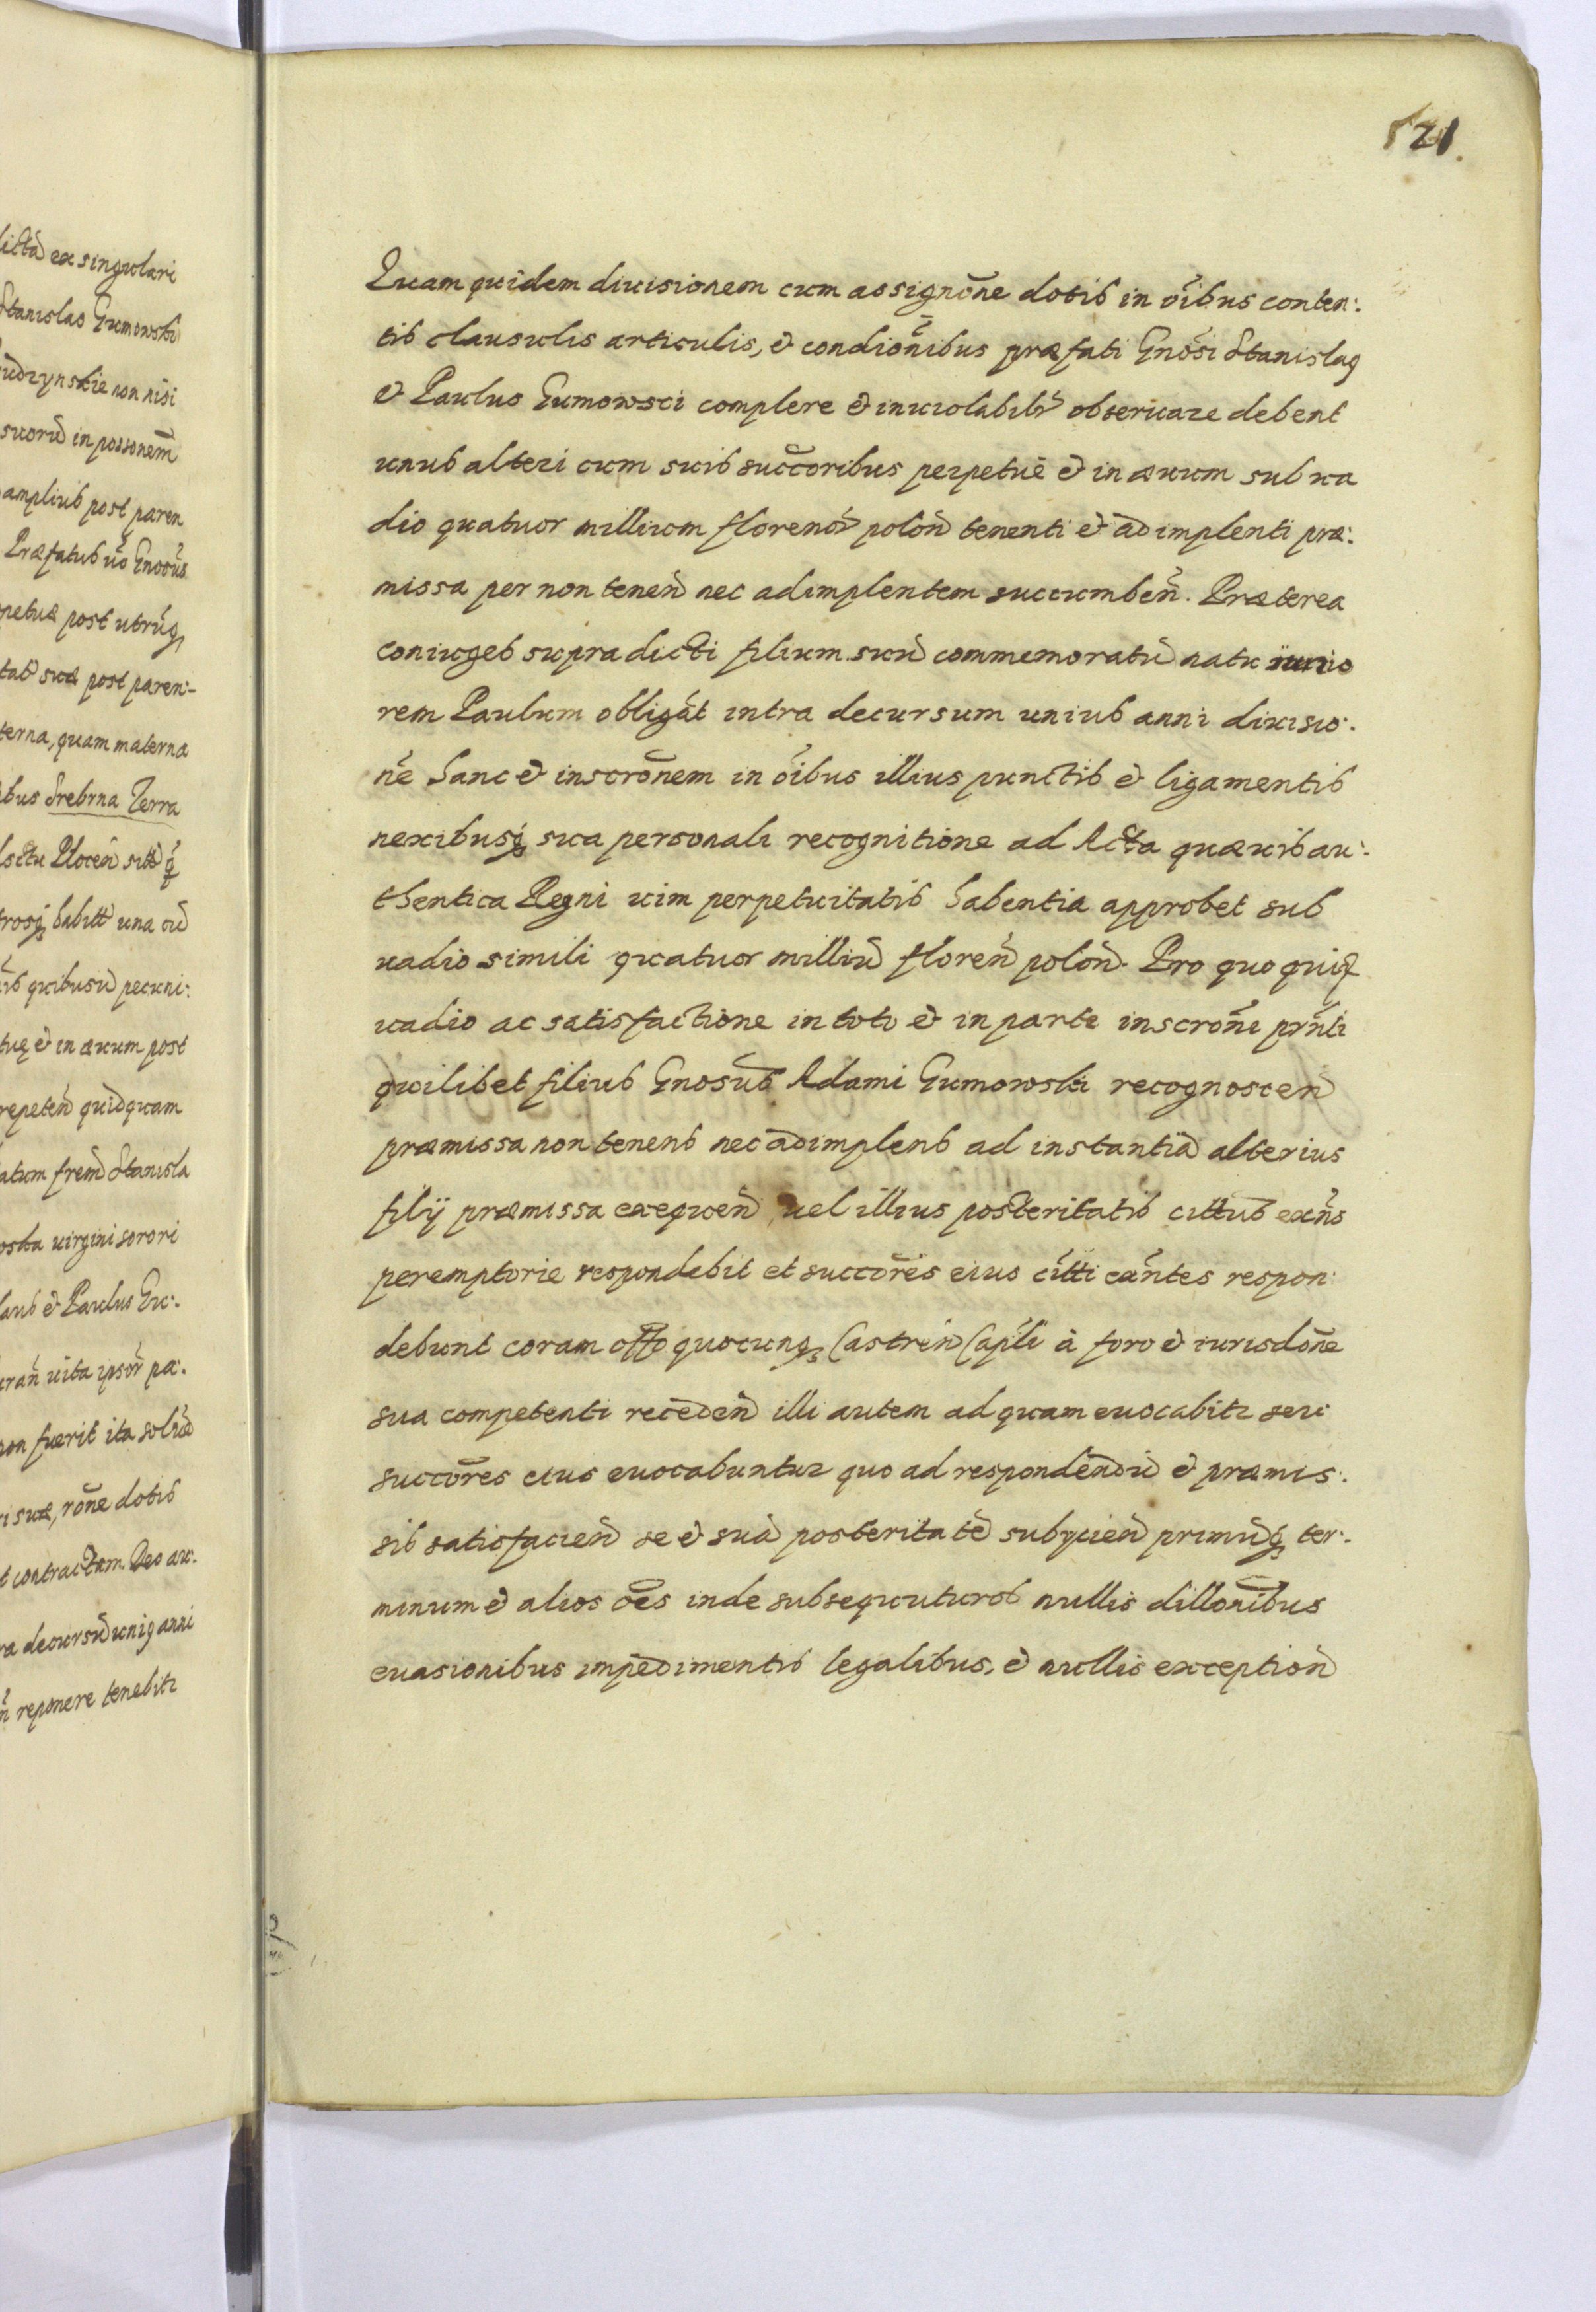 lictã ex singulari
Stanislao Gumowski
udzynskie non nisi
suorũ in possonem̃
amplius post paren
Præfatus ṽo Gnosus
petuæ post utrũq
tati suæ post paren-
terna, quam materna
ibus Srebrna Terra
lsctu Plocen̄ sitis
rosq habitt una cũ
quibusũ pecuni:
tuę & in ævum post
repeten̄ quidquam
atum frem̃ Stanisla
oska virgini sorori
laus & Paulus Gu:
vita ipsor̃ pa:
non fuerit ita solũ
ri suæ, rõne dotis
t contractum Deo au:
ra decursũ unig anni
reponere tenebitr
521.
Quam quidem divisionem cum assignõne dotis in õibus conten:
tis clausulis articulis, & condiõnibus præfati Gnosi Stanislaq
& Paulus Gumowsci complere & inviolabilr observare debent
unus alteri cum suis succoribus perpetuè & in ævum sub va
dio quatuor millium florenõr polon̄ tenenti & adimplenti præ:
missa per non tenen̄ nec adimplentem succumben̄. Præterea
coniuges supradicti filium suũ commemoratũ natu iunio
rem Paulum obligãt intra decursum unius anni divisio:
nẽ hanc & inscrõnem in õibus illius punctis & ligamentis
nexibusq sua personali recognitione ad Acta quævis au:
thentica Regni vim perpetuitatis habentia approbet sub
vadio simili quatuor milliũ floren̄ polon̄. Pro quo quid
vadio ac satisfactione in toto & in parte inscrõne prñti
quilibet filius Gnosus Adami Gumowski recognoscen̄
præmissa non tenens nec adimplens ad instantiã alterius
filij præmissa exequen̄ vel illius posteritatis cittus exñs
peremptorie respondebit et succores eius citti exñtes respon:
debunt coram offo quocunq Castren̄ Capli à foro & iurisdõne
sua competenti receden̄ illi autem ad quam evocabitr seu
succores eius evocabuntur quo ad respondendũ & præmis:
sis satisfacien̄ se & suã posteritatẽ subijcien̄ primũq ter:
minum & alios oẽs inde subsequuturos nullis dillonibus
evasionibus impedimentis legalibus, & nullis exception̄